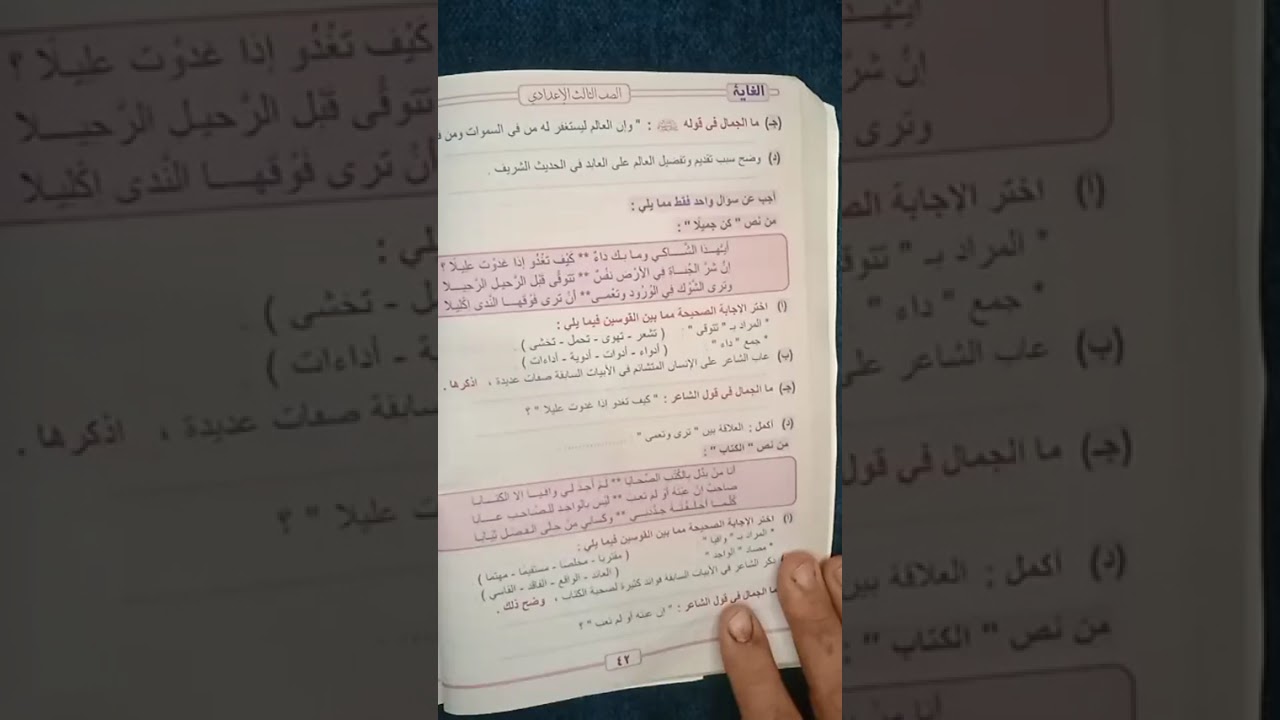 الغاية
الصف الثالث الإعدادي
(جـ) ما الجمال في قوله ﷺ : " وإن العالم ليستغفر له من في السموات ومن ف
(د) وضح سبب تقديم وتفضيل العالم على العابد في الحديث الشريف .
أجب عن سؤال واحد فقط مما يلي :
من نص " كن جميلًا " :
أيُّهـذا الشَّـاكي وما بـك داءٌ ** كَيْف تَغْدُو إذا غدَوْت عليلًا ؟
إنَّ شرَّ الجُنـاةِ في الأرْض نفسٌ ** تتَوقَّى قَبْل الرَّحيل الرَّحيـلا
وترى الشَّوْك في الوُرُود وتعْمـى** أنْ ترى فَوْقهـا النَّدى إكْليلا
(أ) اختر الإجابة الصحيحة مما بين القوسين فيما يلي :
* المراد بـ " تتوقى " : ( تشعر - تهوى - تحمل - تخشى ) .
* جمع " داء " ( أدواء - أدوات - أدوية - أداءات )
(ب) عاب الشاعر على الإنسان المتشائم في الأبيات السابقة صفات عديدة ، اذكرها .
(جـ) ما الجمال في قول الشاعر : " كيف تغدو إذا غدوت عليلا " ؟
(د) أكمل : العلاقة بين " ترى وتعمى " ................
من نص " الكتاب " :
أنا منْ بدَّل بالكُتْب الصِّحابا ** لـمْ أجدْ لـي وافـيـا إلا الكتـابـا
صاحبٌ إنْ عبْتهُ أو لم تعب ** ليْس بالواجد للصَّاحب عـابـا
كُلَّمـا أخلـقْتُـهُ جدَّدنـي ** وكساني منْ حلى الـفضْـل ثيـابا
(أ) اختر الإجابة الصحيحة مما بين القوسين فيما يلي :
* المراد بـ " وافيا " ( مقتربا - مخلصا - مستقيما - مهتما )
* مضاد " الواجد " ( العائد - الواقع - الفاقد - القاسي )
ذكر الشاعر في الأبيات السابقة فوائد كثيرة لصحبة الكتاب ، وضح ذلك .
ما الجمال في قول الشاعر : " إن عبته أو لم تعب " ؟
٤٢